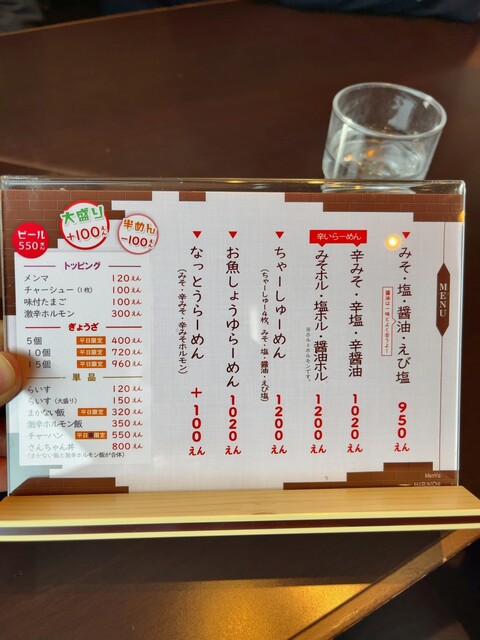 MENU
▼みそ・塩・醤油・えび塩 950えん
醤油は一味とよく合うよ!
辛いらーめん
辛みそ・辛塩・辛醤油 1020えん
みそホル・塩ホル・醤油ホル 1200えん
▼ちゃーしゅーめん 1200えん
(ちゃーしゅー4枚、みそ・塩・醤油・えび塩)
▼お魚しょうゆらーめん 1020えん
▼なっとうらーめん +100えん
(みそ・辛みそ・辛みそホルモン)
ビール
550えん
大盛り
+100えん
半めん
-100えん
トッピング
メンマ 120えん
チャーシュー(1枚) 100えん
味付たまご 100えん
激辛ホルモン 300えん
ぎょうざ
5個 平日限定 400えん
10個 平日限定 720えん
15個 平日限定 960えん
単品
らいす 120えん
らいす(大盛り) 150えん
まかない飯 平日限定 320えん
激辛ホルモン飯 350えん
チャーハン 550えん
さんちゃん丼 800えん
(まかない飯と激辛ホルモン飯が合体)